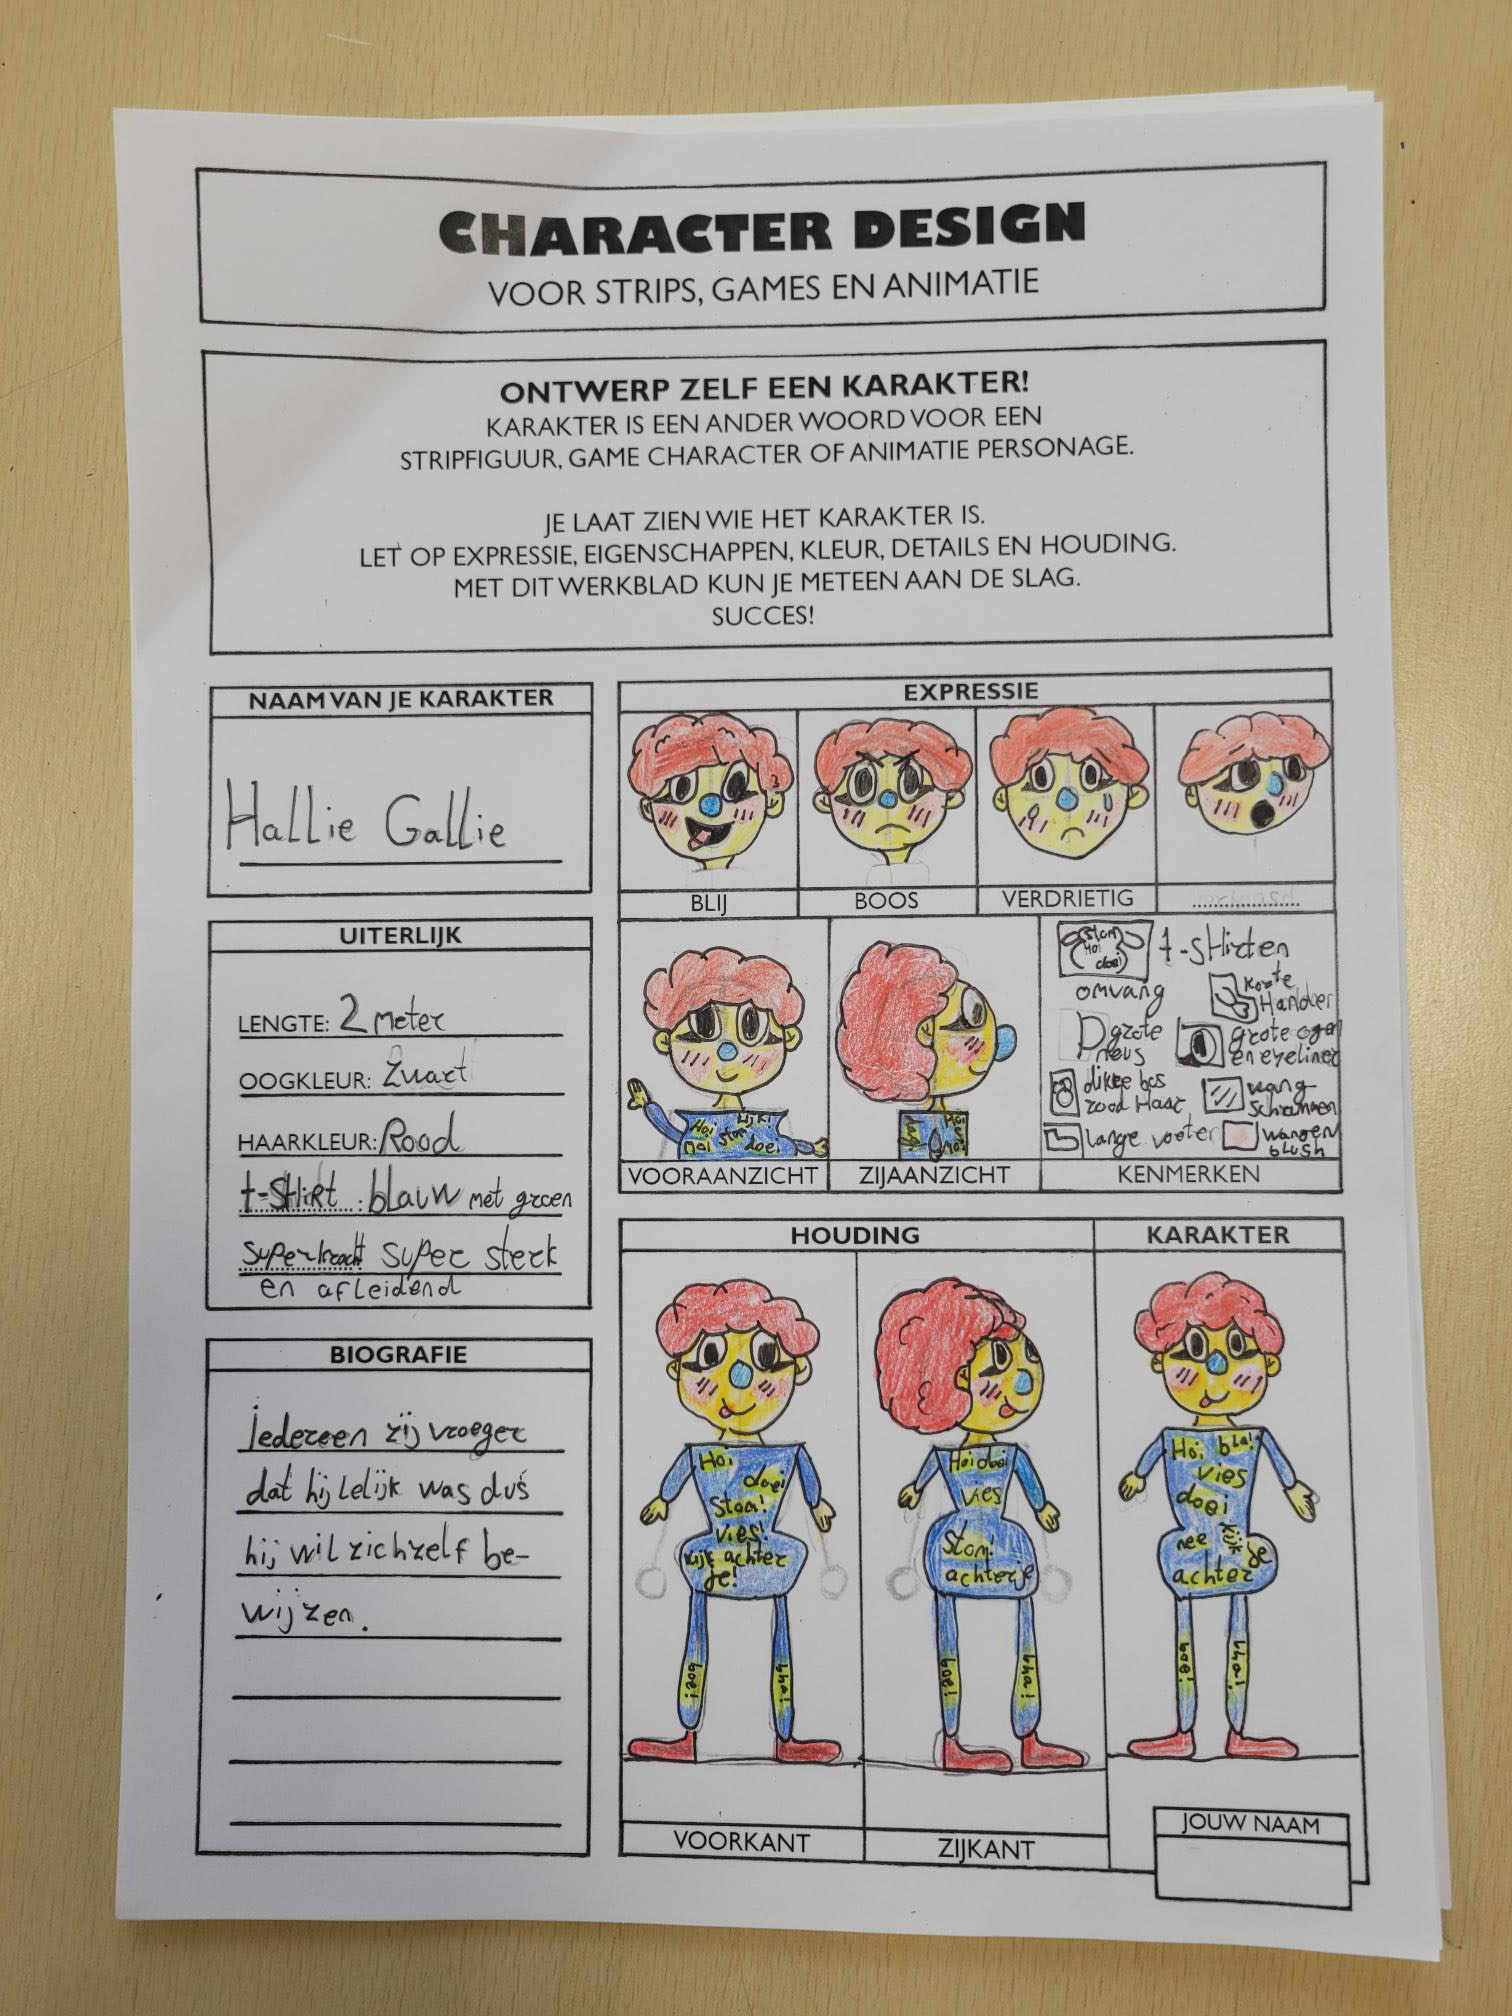 CHARACTER DESIGN
VOOR STRIPS, GAMES EN ANIMATIE
ONTWERP ZELF EEN KARAKTER!
KARAKTER IS EEN ANDER WOORD VOOR EEN
STRIPFIGUUR, GAME CHARACTER OF ANIMATIE PERSONAGE.
JE LAAT ZIEN WIE HET KARAKTER IS.
LET OP EXPRESSIE, EIGENSCHAPPEN, KLEUR, DETAILS EN HOUDING.
MET DIT WERKBLAD KUN JE METEEN AAN DE SLAG.
SUCCES!
NAAM VAN JE KARAKTER
Hallie Gallie
UITERLIJK
LENGTE: 2 meter
OOGKLEUR: Zwart
HAARKLEUR: Rood
t-SHIRT : blauw met groen
superkracht super sterk
en afleidend
BIOGRAFIE
iedereen zij vroeger
dat hij lelijk was dus
hij wil zichzelf be-
wijzen.
EXPRESSIE
BLIJ
BOOS
VERDRIETIG
Hoi
stom
kijk!
doei
VOORAANZICHT
Hoi
ZIJAANZICHT
stom
Hoi
doei
t-shirten
omvang
korte
Handen
grote
neus
grote ogen
en eyeliner
dikke bos
rood Haar
wang-
schrammen
lange voeten
wangen
blush
KENMERKEN
HOUDING
Hoi
doei
Stom!
vies!
kijk achter
je!
boe!
bha!
VOORKANT
Hoi doei
vies
Stom!
achter je
boe!
bha!
ZIJKANT
KARAKTER
Hoi bla!
vies
doei
nee kijk je
achter
boe!
bha!
JOUW NAAM